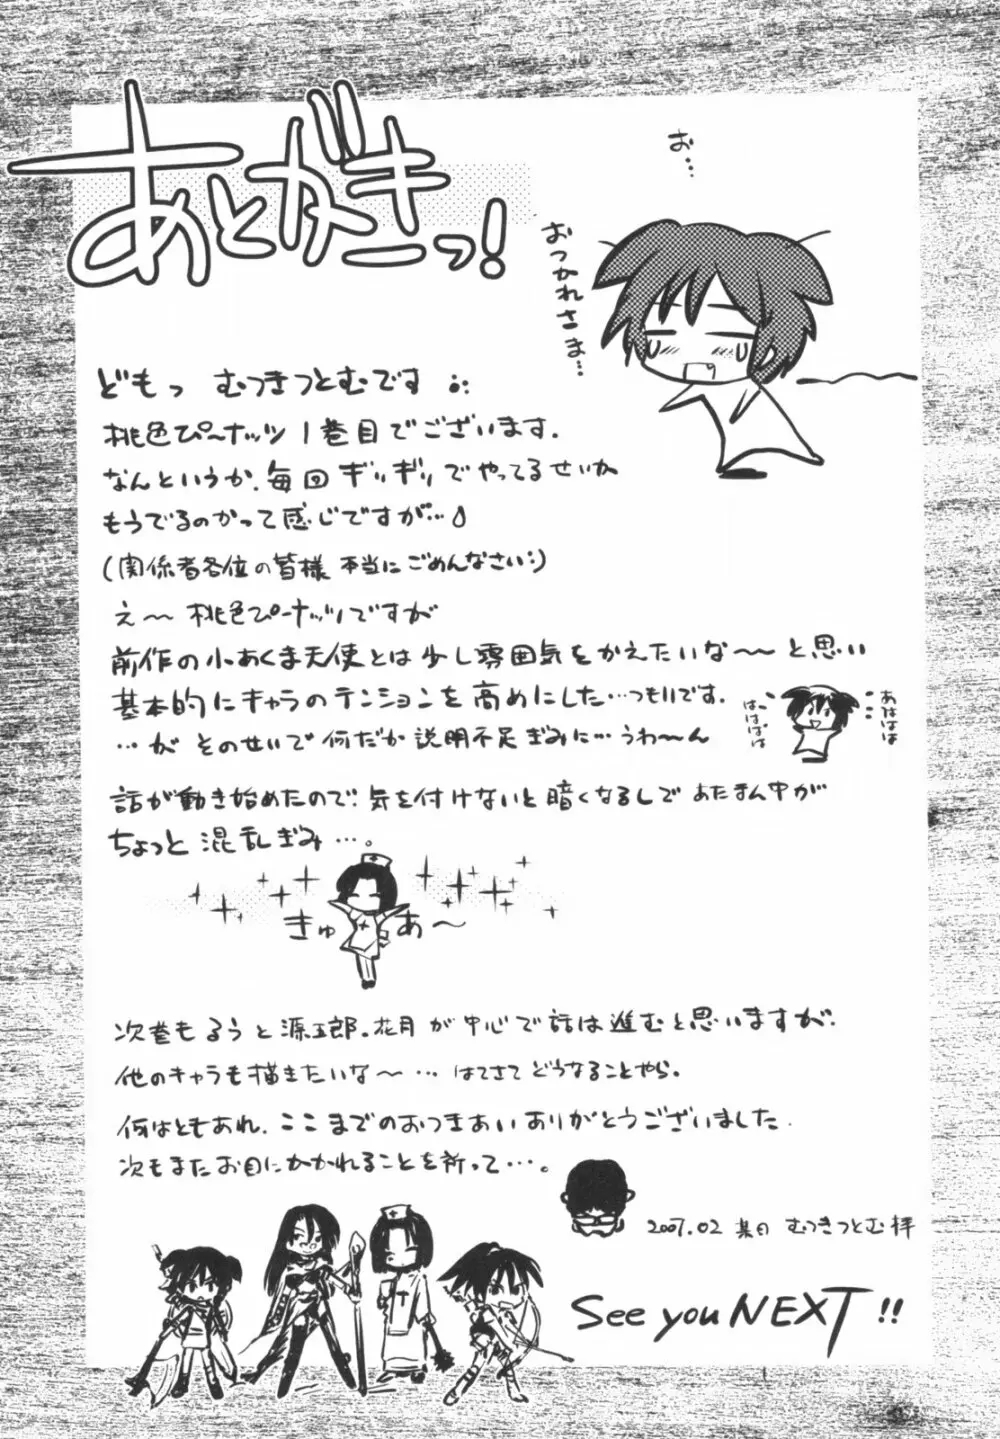 あとがきっ!
お…
おつかれさま…
どもっ むつきつとむです
桃色ぴーナッツ1巻目でございます.
なんというか.毎回ギリギリでやってるせいか
もうでるのかって感じですが…
(関係者各位の皆様 本当にごめんなさい:)
え〜 桃色ぴーナッツですが
前作の小あくま天使とは少し雰囲気をかえたいな〜〜と思い
基本的にキャラのテンションを高めにした…つもりです.
…がそのせいで何だか説明不足ぎみに…うわ〜ん
あははは
はばばは
話が動き始めたので.気を付けないと暗くなるしで あたまん中が
ちょっと混乱ぎみ…。
きゅあ〜
次巻もるうと源五郎.花月が中心で話は進むと思いますが.
他のキャラも描きたいな〜…はてさてどうなることやら。
何はともあれ.ここまでのおつきあいありがとうございました.
次もまたお目にかかれることを祈って…。
2007.02 某日 むつきつとむ拝
See you NEXT!!